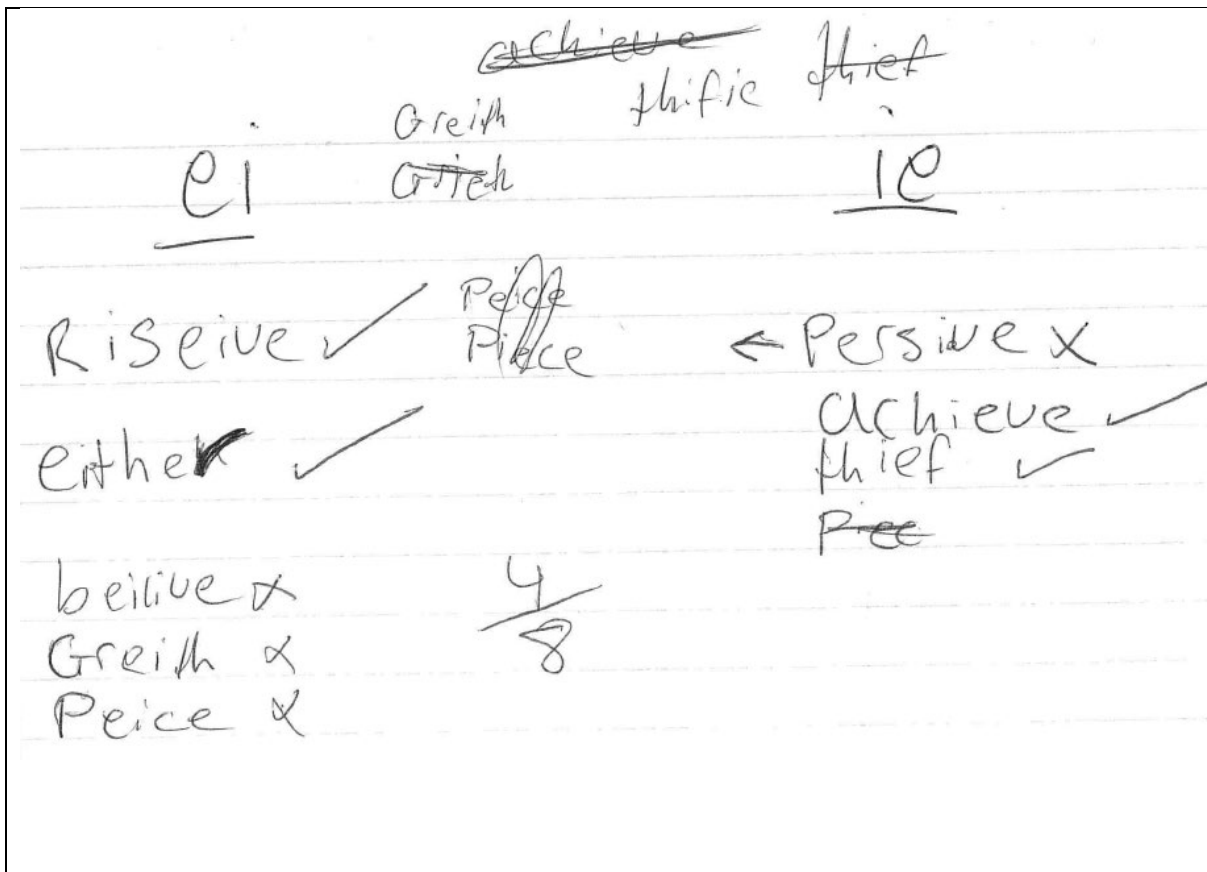 achieve
thifie thief
Greith
ei Grieh ie
Peice
Riseive ✓ Piece ← Persive x
achieve ✓
either ✓ thief ✓
Piec
beilive x 4/8
Greith x
Peice x